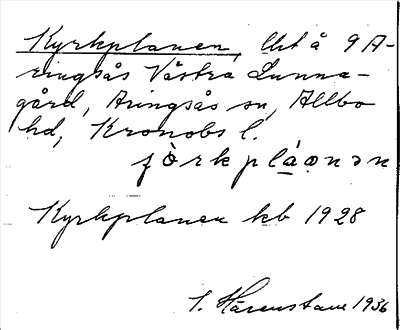 Kyrkplanen, lht å 9 A-
ringsås Västra Lunna-
gård, Aringsås sn, Allbo
hd, Kronobs l.
jòrkplá̱ǝnǝn
Kyrkplanen kb 1928
S. Härenstam 1936